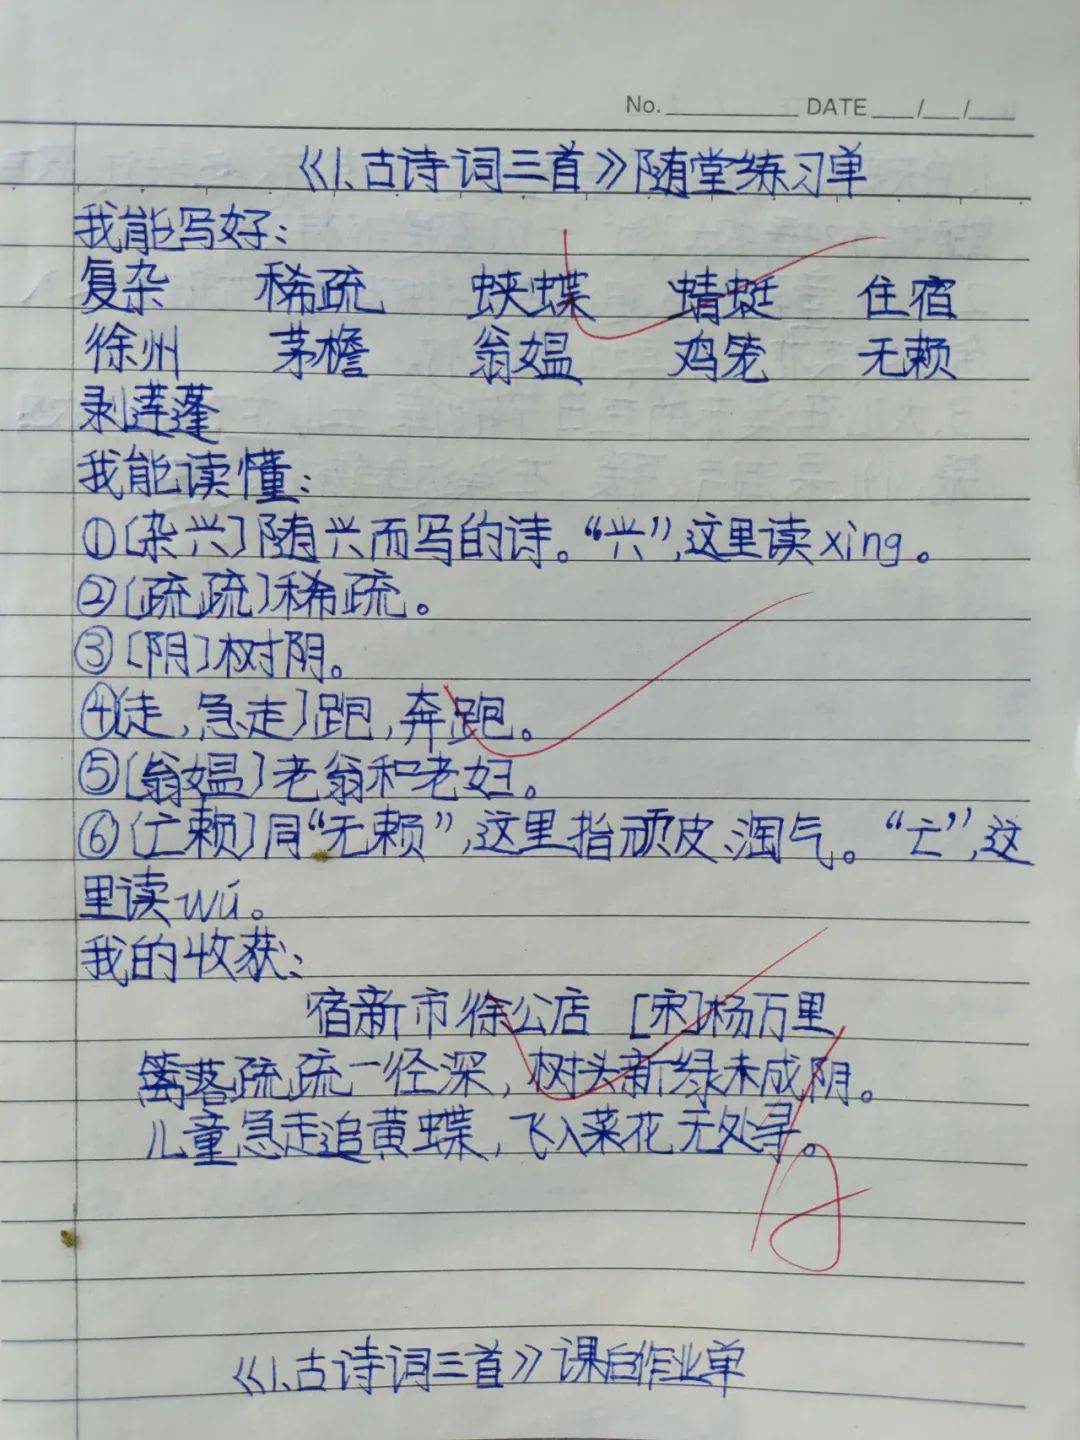 No. DATE / /
《1、古诗词三首》随堂练习单
我能写好:
复杂 稀疏 蛱蝶 蜻蜓 住宿
徐州 茅檐 翁媪 鸡笼 无赖
剥莲蓬
我能读懂:
①〔杂兴〕随兴而写的诗。“兴”,这里读xing。
②〔疏疏〕稀疏。
③〔阴〕树阴。
④〔走,急走〕跑,奔跑。
⑤〔翁媪〕老翁和老妇。
⑥〔亡赖〕同“无赖”,这里指顽皮、淘气。“亡”,这
里读wú。
我的收获:
宿新市徐公店 [宋]杨万里
篱落疏疏一径深,树头新绿未成阴。
儿童急走追黄蝶,飞入菜花无处寻。
《1、古诗词三首》课后作业单